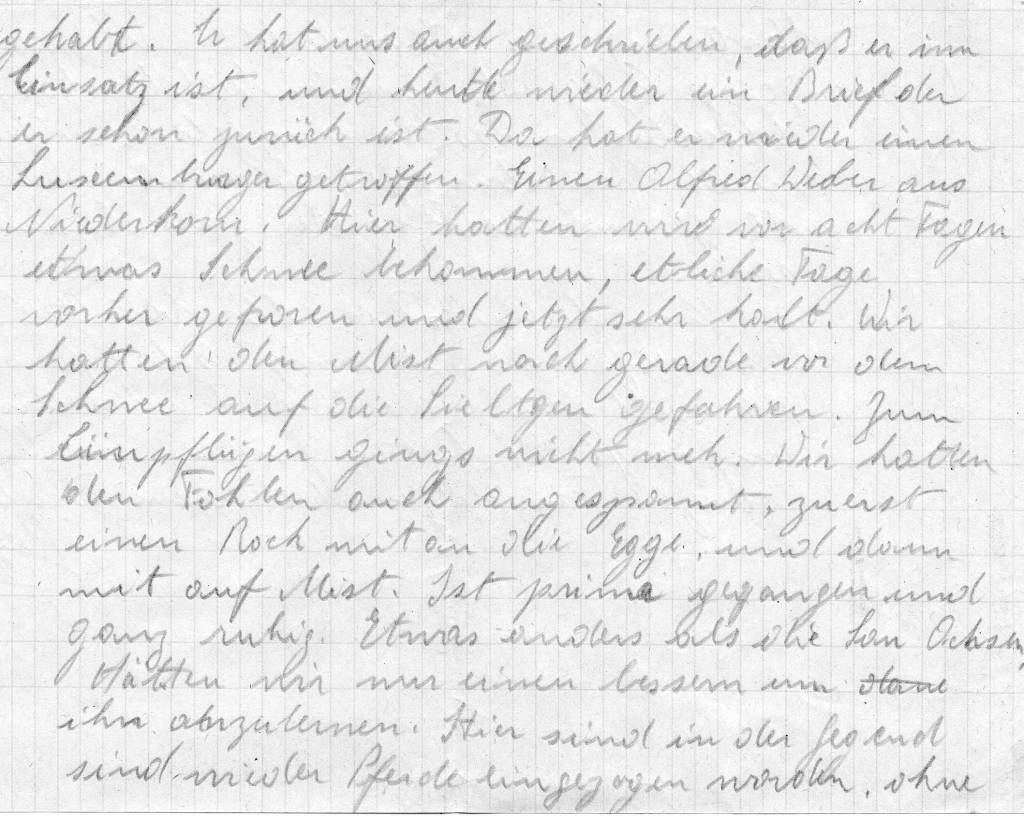 gehabt. Er hat uns auch geschrieben, daß er im
Einsatz ist, und heute wieder ein Brief der
er schon zurück ist. Da hat er wieder einen
Luxemburger getroffen. Einen Alfred Weber aus
Niederkorn. Hier hatten wird vor acht Tagen
etwas Schnee bekommen, etliche Tage
vorher gefroren und jetzt sehr kalt. Wir
hatten den Mist noch gerade vor dem
Schnee auf die gefahren. Zum
Einpflügen gings nicht meh. Wir hatten
den Fohlen auch angespannt, zuerst
einen Rock mit an die Egge, und dann
mit auf Mist. Ist prima gegangen und
ganz ruhig. Etwas anders als die Ochsen,
Hätten wir nur einen bessern um
ihn abzulernen. Hier sind in der Gegend
sind wieder Pferde eingezogen worden, ohne